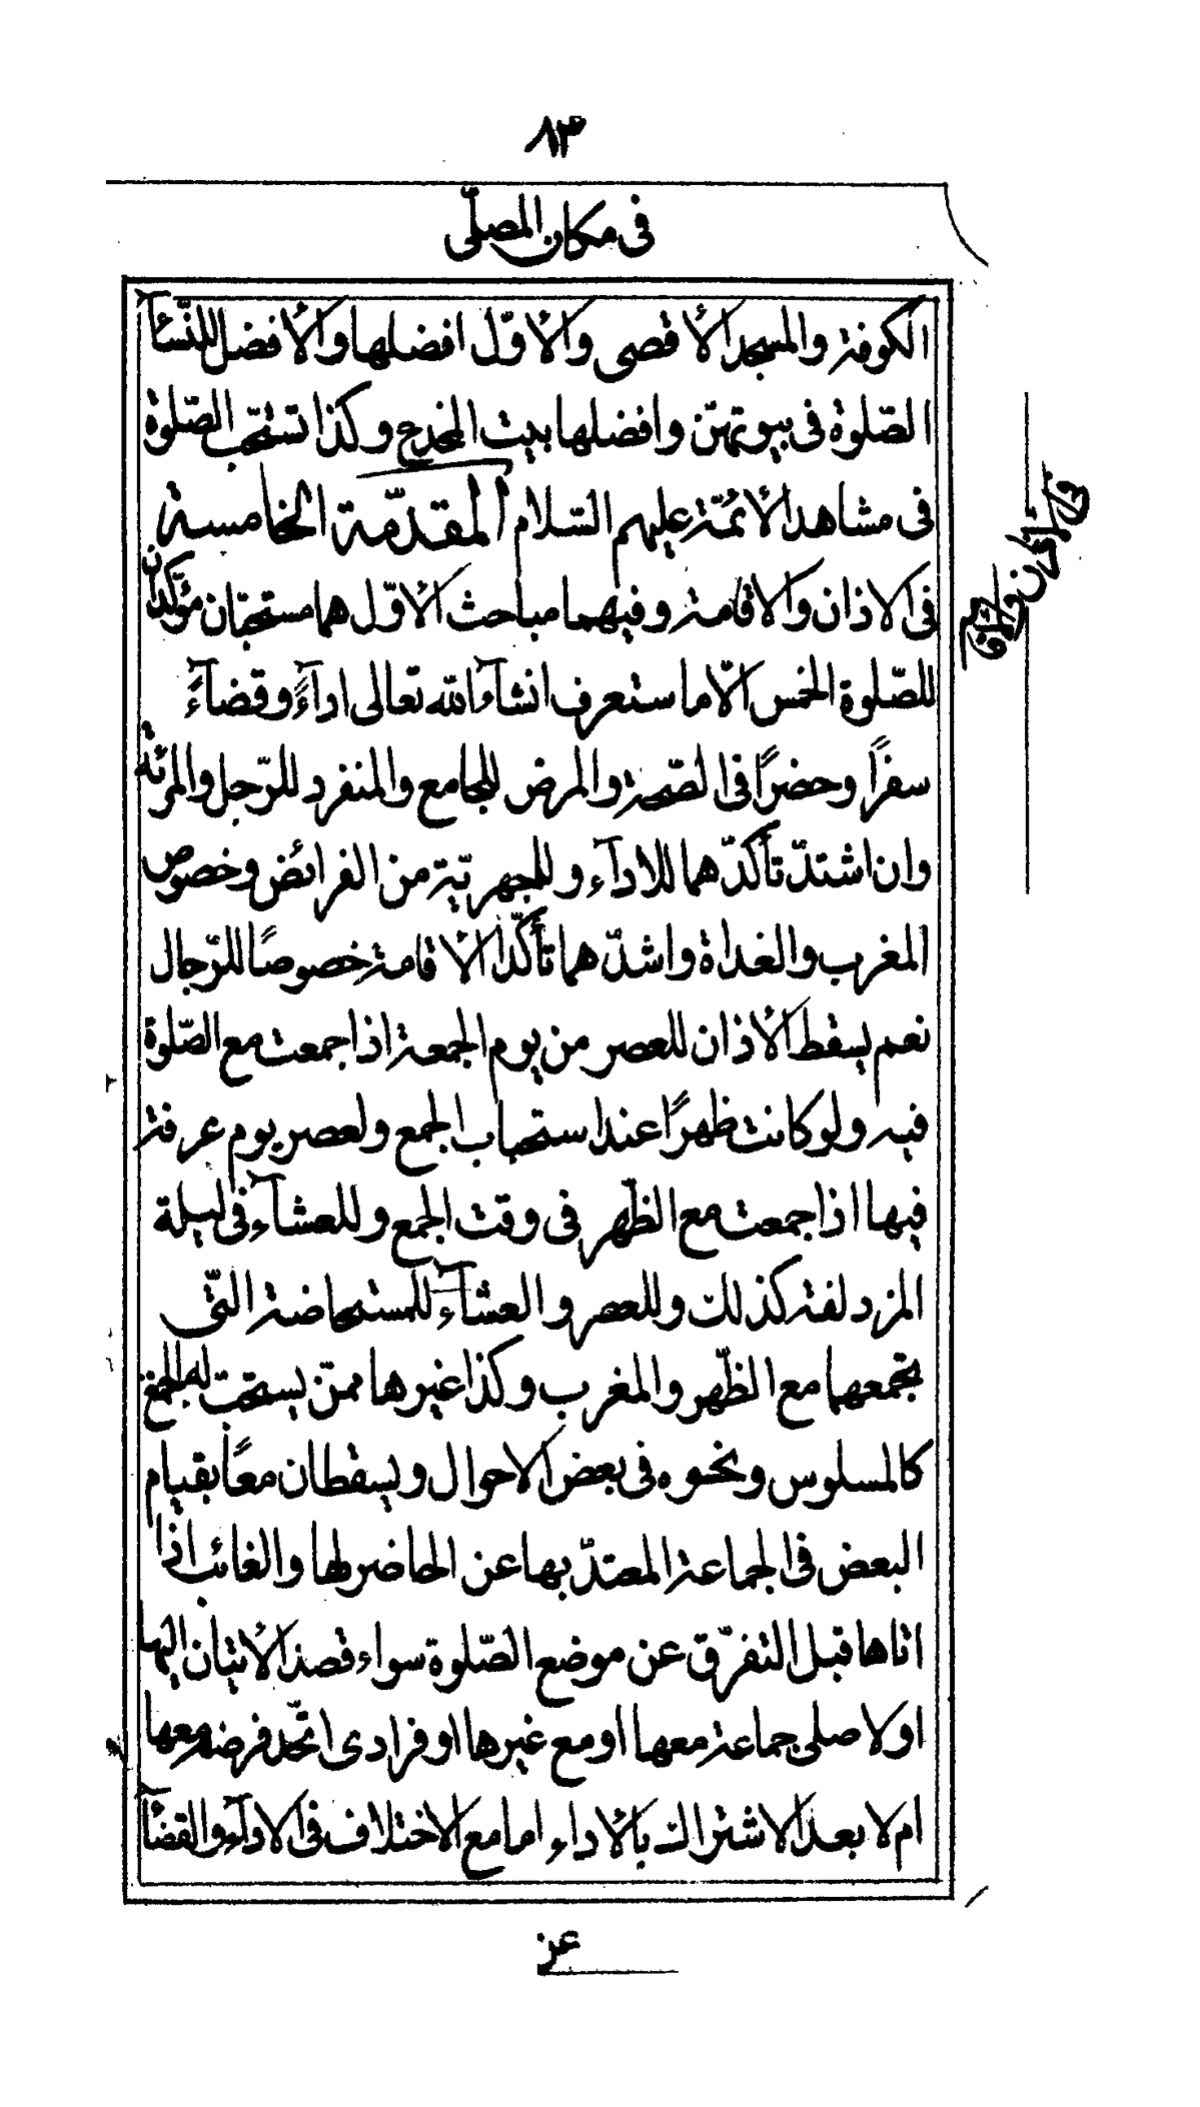 ٨٣
فى مكان المصلّى
الكوفة والمسجد الأقصى والأوّل افضلها والأفضل للنّسآء
الصّلوة فى بيوتهنّ وافضلها بيت المخدع وكذا تستحّب الصّلوة
فى مشاهد الأئمّة عليهم السّلام المقدّمة الخامسة
فى الاذان والاقامة وفيهما مباحث الأوّل هما مستحبّان مؤكّدان
للصّلوة الخمس الّا ما ستعرف انشآء الله تعالى ادآءً وقضآءً
سفرًا وحضرًا فى الصّحة والمرض للجامع والمنفرد للرّجل والمرئة
وان اشتدّ تأكدّهما للادآء وللجهريّة من الفرائض وخصوص
المغرب والغداة واشدّهما تأكّدا الأقامة خصوصًا للرّجال
نعم يسقط الأذان للعصر من يوم الجمعة اذا جمعت مع الصّلوة
فيه ولو كانت ظهرًا عند استحباب الجمع ولعصر يوم عرفة
فيها اذا جمعت مع الظّهر فى وقت الجمع وللعشآء فى ليلة
المزدلفة كذلك وللعصر والعشآء للمستحاضة الّتى
تجمعهما مع الظّهر والمغرب وكذا غيرها ممّن يستحبّ له الجمع
كالمسلوس ونحوه فى بعض الاحوال ويسقطان معًا بقيام
البعض فى الجماعة المعتدّ بها عن الحاضر لها والغائب اذا
اتاها قبل التفرّق عن موضع الصّلوة سواء قصد الأتيان اليها
او لا صلى جماعة معها او مع غيرها او فرادى اتّحد فرضه معها
ام لا بعد الاشتراك بالأداء اما مع الاختلاف فى الادآء والقضآء
عن
فى الأذان والاقامة